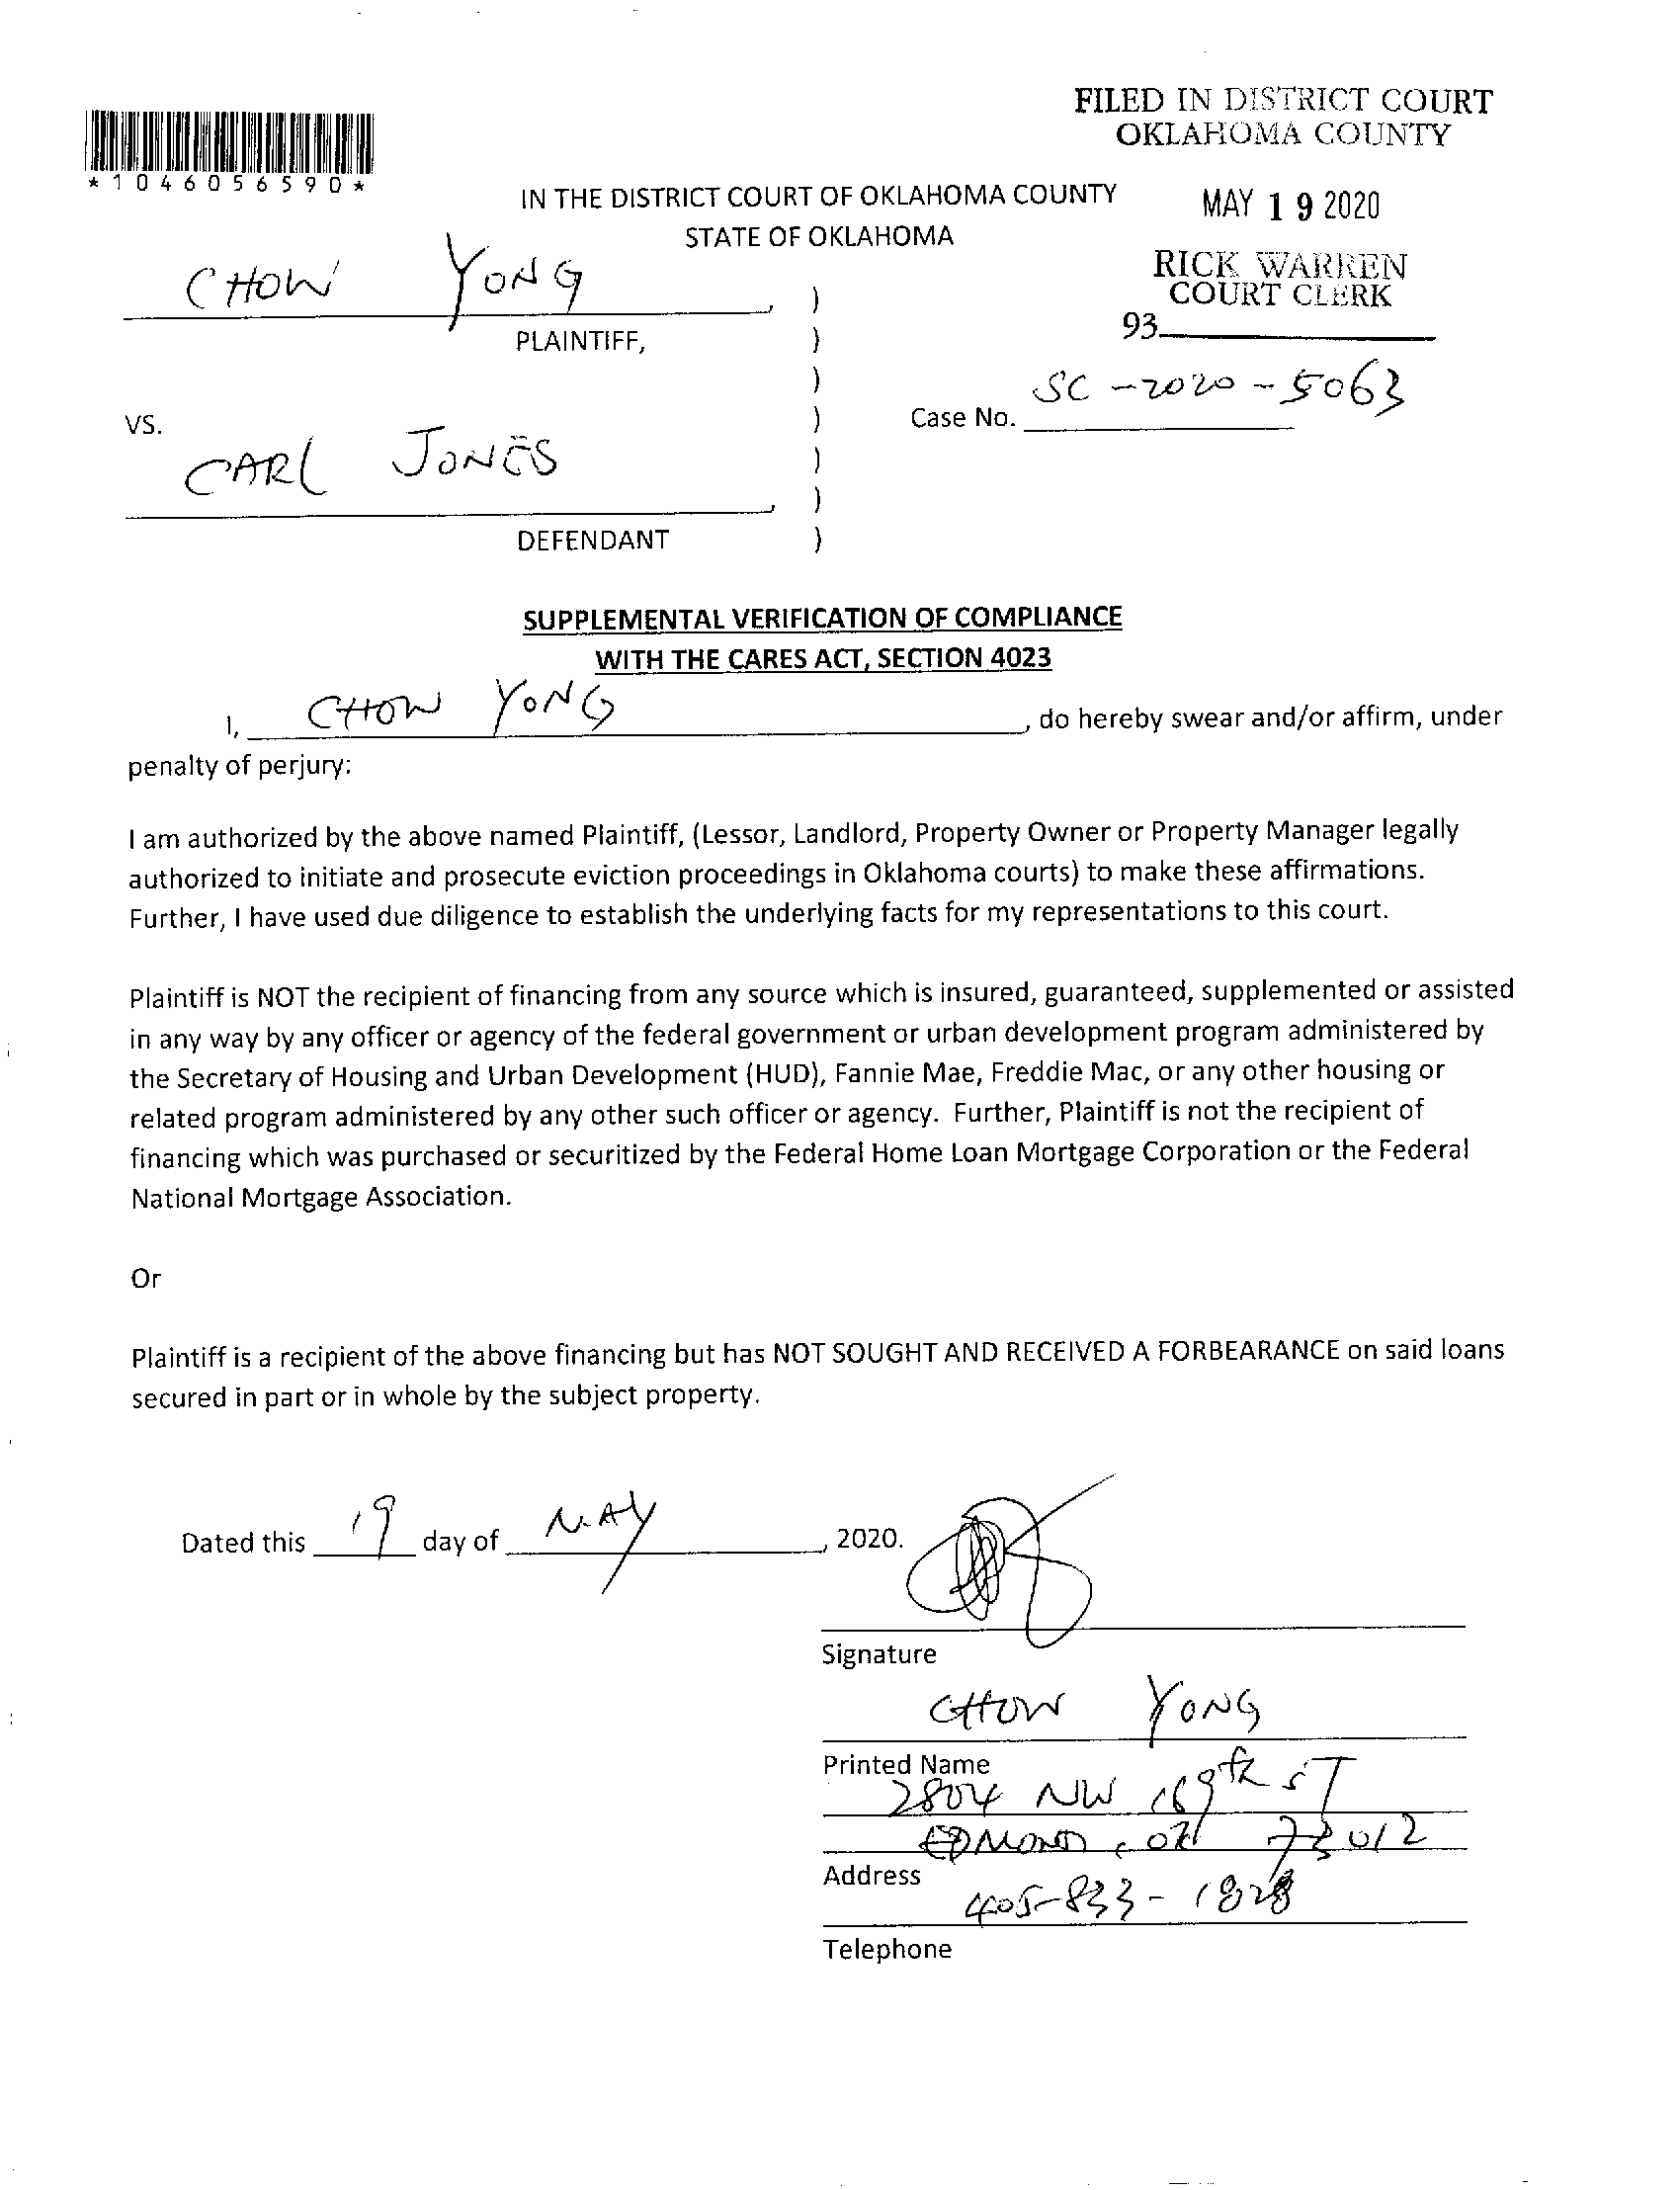 FILED IN DISTRICT COURT
OKLAHOMA COUNTY
*1046056590*
IN THE DISTRICT COURT OF OKLAHOMA COUNTY
MAY 19 2020
STATE OF OKLAHOMA
RICK WARREN
COURT CLERK
CHOW YONG, )
93
PLAINTIFF, )
)
SC-2020-5063
VS. ) Case No.
CARL JONES )
, )
DEFENDANT )
SUPPLEMENTAL VERIFICATION OF COMPLIANCE
WITH THE CARES ACT, SECTION 4023
I, CHOW YONG, do hereby swear and/or affirm, under
penalty of perjury:
I am authorized by the above named Plaintiff, (Lessor, Landlord, Property Owner or Property Manager legally
authorized to initiate and prosecute eviction proceedings in Oklahoma courts) to make these affirmations.
Further, I have used due diligence to establish the underlying facts for my representations to this court.
Plaintiff is NOT the recipient of financing from any source which is insured, guaranteed, supplemented or assisted
in any way by any officer or agency of the federal government or urban development program administered by
the Secretary of Housing and Urban Development (HUD), Fannie Mae, Freddie Mac, or any other housing or
related program administered by any other such officer or agency. Further, Plaintiff is not the recipient of
financing which was purchased or securitized by the Federal Home Loan Mortgage Corporation or the Federal
National Mortgage Association.
Or
Plaintiff is a recipient of the above financing but has NOT SOUGHT AND RECEIVED A FORBEARANCE on said loans
secured in part or in whole by the subject property.
Dated this 19 day of MAY, 2020.
Signature
CHOW YONG
Printed Name
2804 NW 169th ST
EDMOND, OK 73012
Address
405-833-1828
Telephone